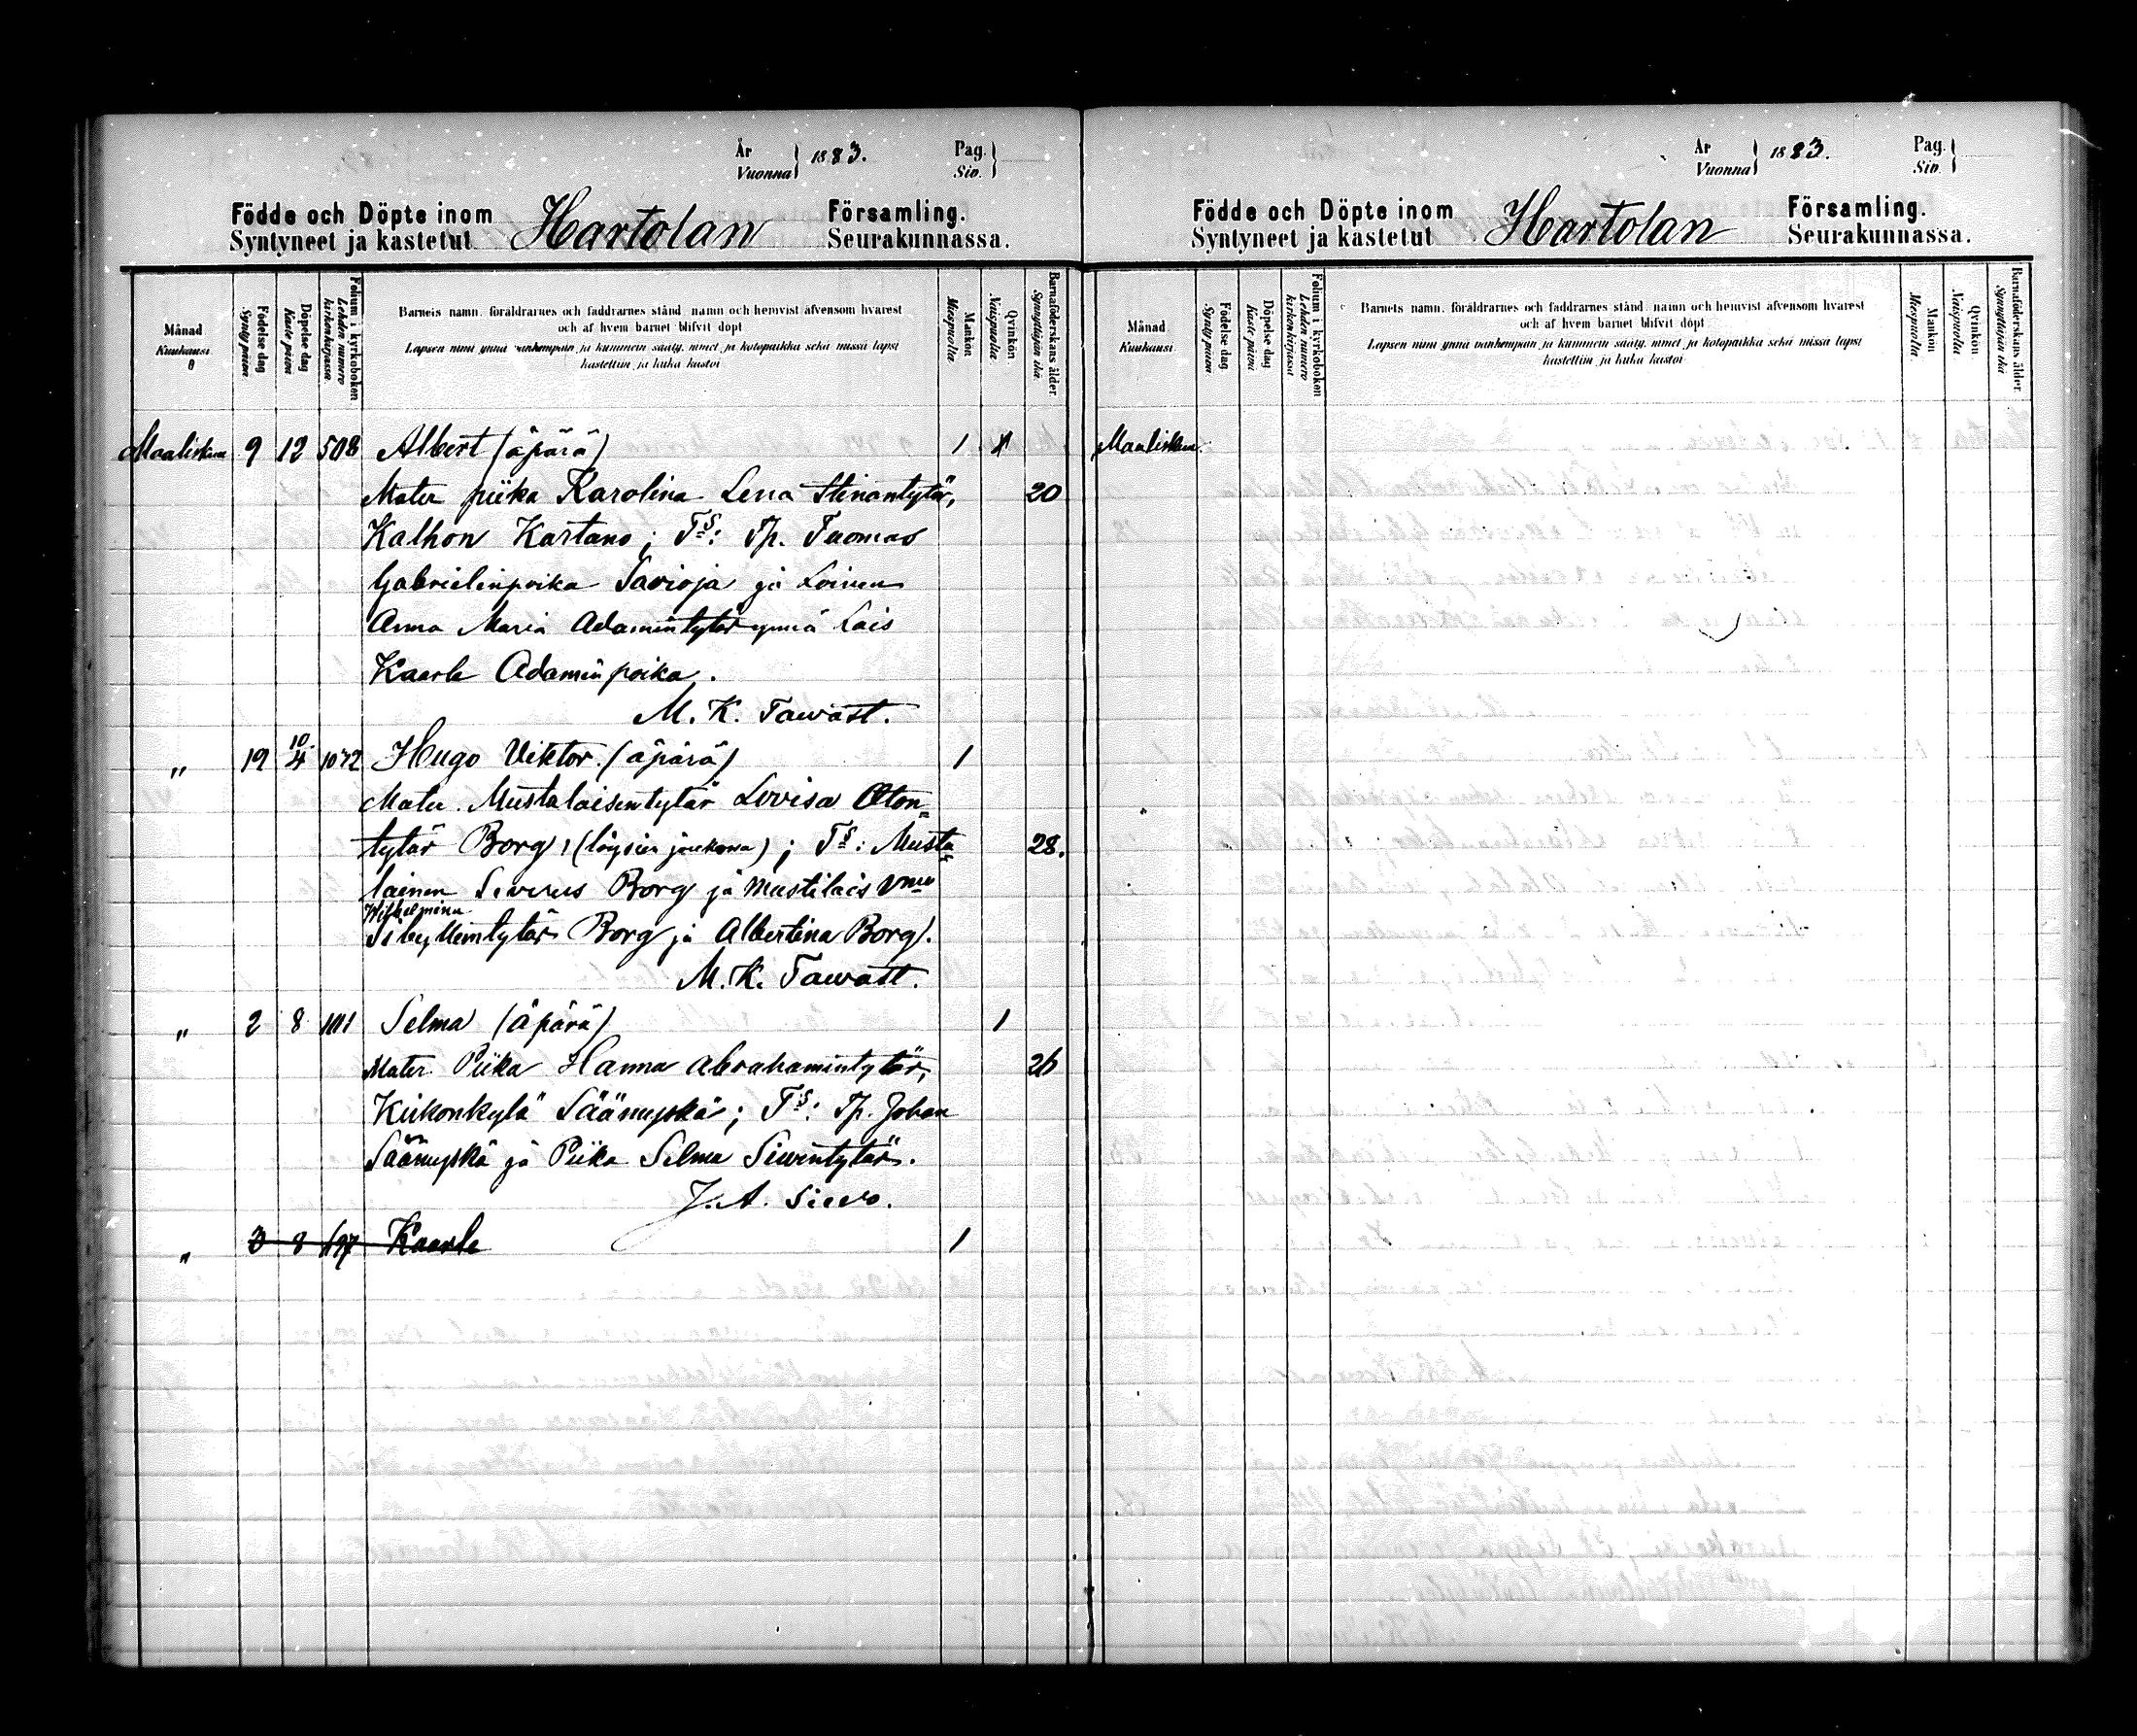 År
Vuonna } 1883.
Pag.
Siv. }
Födde och Döpte inom Hartolan Församling.
Syntyneet ja kastetut Seurakunnassa.
Månad
Kuukausi
Födelse dag
Synty päivä
Döpelse dag
Kaste päivä
Folium i kyrkoboken
Lehden numero kirkonkirjassa
Barnets namn, föräldrarnes och faddrarnes stånd, namn och hemvist äfvensom hvarest
och af hvem barnet blifvit döpt
Lapsen nimi ynnä vanhempain ja kummein sääty, nimet ja kotopaikka sekä missä lapsi
kastettiin ja kuka kastoi
Mankön
Miespuolia
Qvinkön
Naispuolia
Barnaföderskans ålder
Synnyttäjän ikä
Maaliskuu 9 12 508 Albert (äpärä) 1
Mater piika Karolina Lena Stinantytär, 20
Kalhon Kartano; Ts: Tp. Tuomas
Gabrielinpoika Savioja ja Loinen
Anna Maria Adamintytär ynnä Lais
Kaarle Adaminpoika.
M. K. Tawast.
" 19 10/4 1072 Hugo Viktor. (äpärä) 1
Mater. Mustalaisentytär Lovisa Oton=
tytär Borg, (löysien joukossa); Ts: Musta= 28.
lainen Severus Borg ja Mustilais Vmo
Wilhelmina
Borg ja Albertina Borg.
M. K. Tawast.
" 2 8 101 Selma (äpärä) 1
Mater. Piika Hanna Abrahamintytär, 26
Kiikonkylä Säämyskä; Ts: Tp. Johan
Säämyskä ja Piika Selma Siwintytär.
J. A. Siewo.
" 3 8 Kaarle 1
År
Vuonna } 1883.
Pag.
Siv. }
Födde och Döpte inom Hartolan Församling.
Syntyneet ja kastetut Seurakunnassa.
Månad
Kuukausi
Födelse dag
Synty päivä
Döpelse dag
Kaste päivä
Folium i kyrkoboken
Lehden numero kirkonkirjassa
Barnets namn, föräldrarnes och faddrarnes stånd, namn och hemvist äfvensom hvarest
och af hvem barnet blifvit döpt
Lapsen nimi ynnä vanhempain ja kummein sääty, nimet ja kotopaikka sekä missä lapsi
kastettiin ja kuka kastoi
Mankön
Miespuolia
Qvinkön
Naispuolia
Barnaföderskans ålder
Synnyttäjän ikä
Maaliskuu